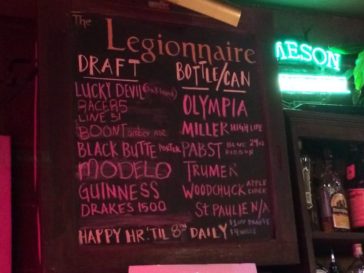 The Legionnaire
DRAFT
LUCKY DEVIL (Oakland)
RACER 5
LINE 51
BOONT amber ale
BLACK BUTTE PORTER
MODELO
GUINNESS
DRAKES 1500
BOTTLE/CAN
OLYMPIA
MILLER HIGH LIFE
PABST BLUE RIBBON 24oz
TRUMER
WOODCHUCK APPLE CIDER
ST PAULIE N/A
HAPPY HR. 'TIL 8PM DAILY
MESON